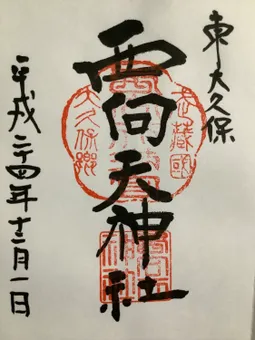 東大久保
西向天神社
平成二十四年十二月一日
武蔵國
大久保